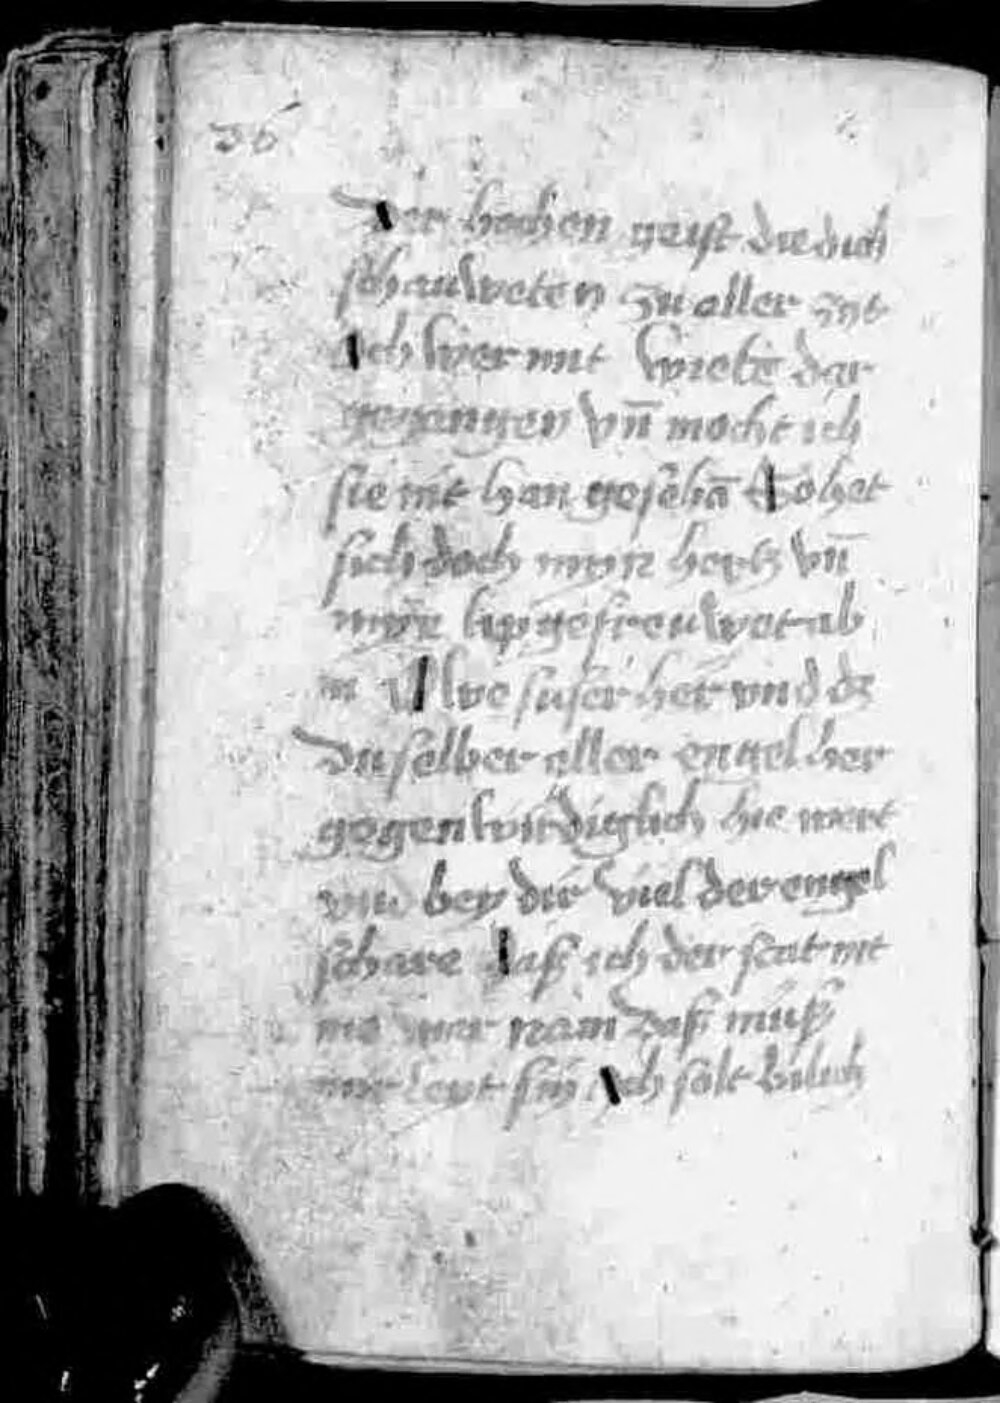 36
Der hochen geist die dich
schauweten zu aller zyt
Ich wer mit wirde dar
gegangen vn̄ mocht ich
sie nit han gesehā So het
sich doch myn hertz vn̄
myn lip gefreuwet ab
we suser her vnd dz
du selber aller engel her
gegenwirdiglich hie wert
vnd bey dir viel der engel
schare Das ich der scat nit
me war nam Das muß
mir leyt sin Ich solt bilich